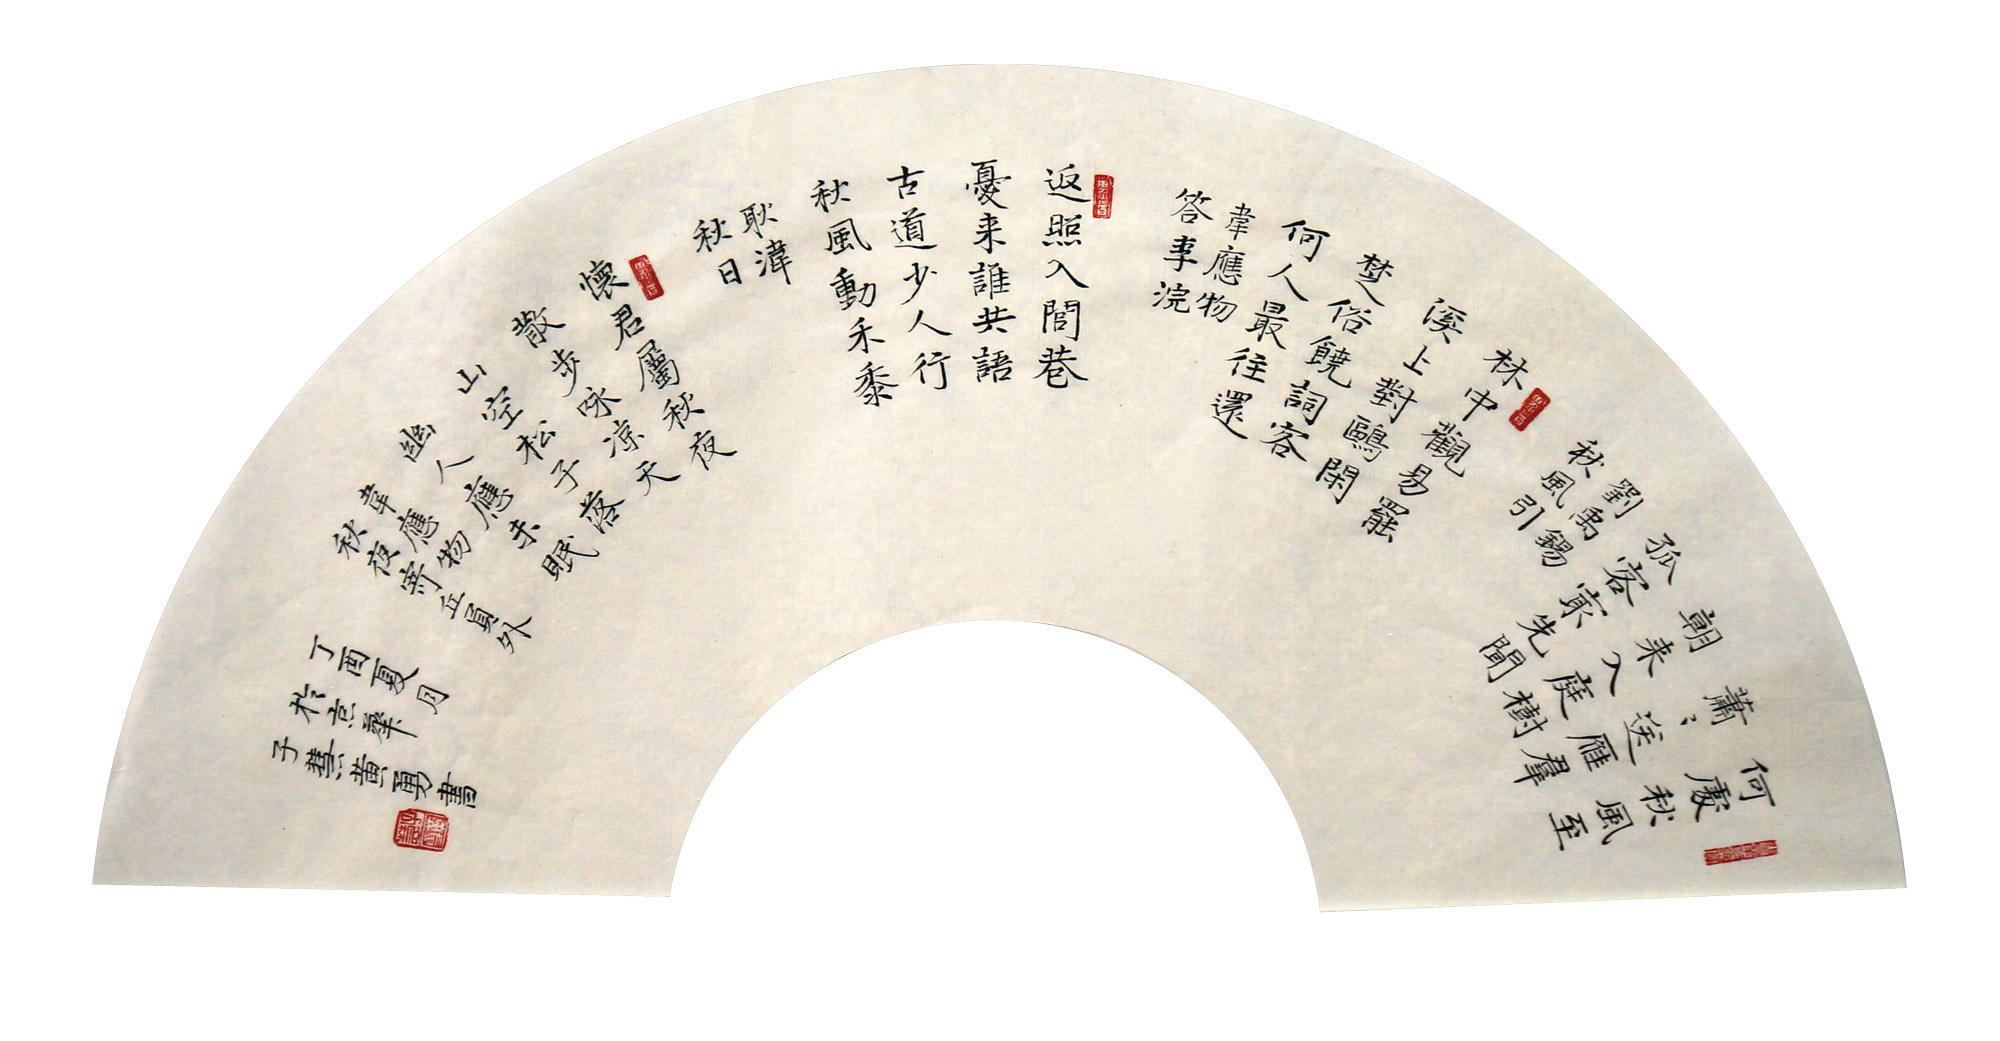 何處秋風至
蕭〻送雁羣
朝来入庭樹
孤客㝡先聞
劉禹錫
秋風引
林中觀易罷
溪上對鷗閑
楚俗饒詞客
何人最往還
韋應物
答李浣
返照入閭巷
憂来誰共語
古道少人行
秋風動禾黍
耿湋
秋日
懷君屬秋夜
散步咏凉天
山空松子落
幽人應未眠
韋應物
秋夜寄丘員外
丁酉夏月
扵京華
子慧黄勇書